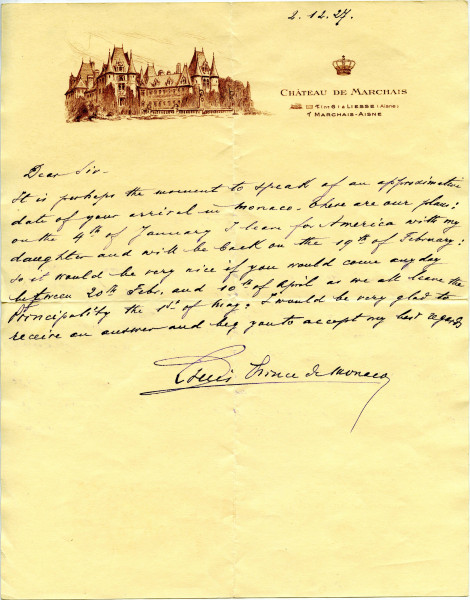 2.12.27.
CHÂTEAU DE MARCHAIS
6 à LIESSE (Aisne)
MARCHAIS-AISNE
Dear Sir.
It is perhaps the moment to speak of an approximative
date of your arrival in Monaco. Here are our plans:
on the 4th of January I leave for America with my
daughter and will be back on the 19th of February:
so it would be very nice if you would come any day
between 20th Feb. and 10th of April as we all leave the
Principality the 1st of May; I would be very glad to
receive an answer and beg you to accept my best regards
Louis Prince de Monaco